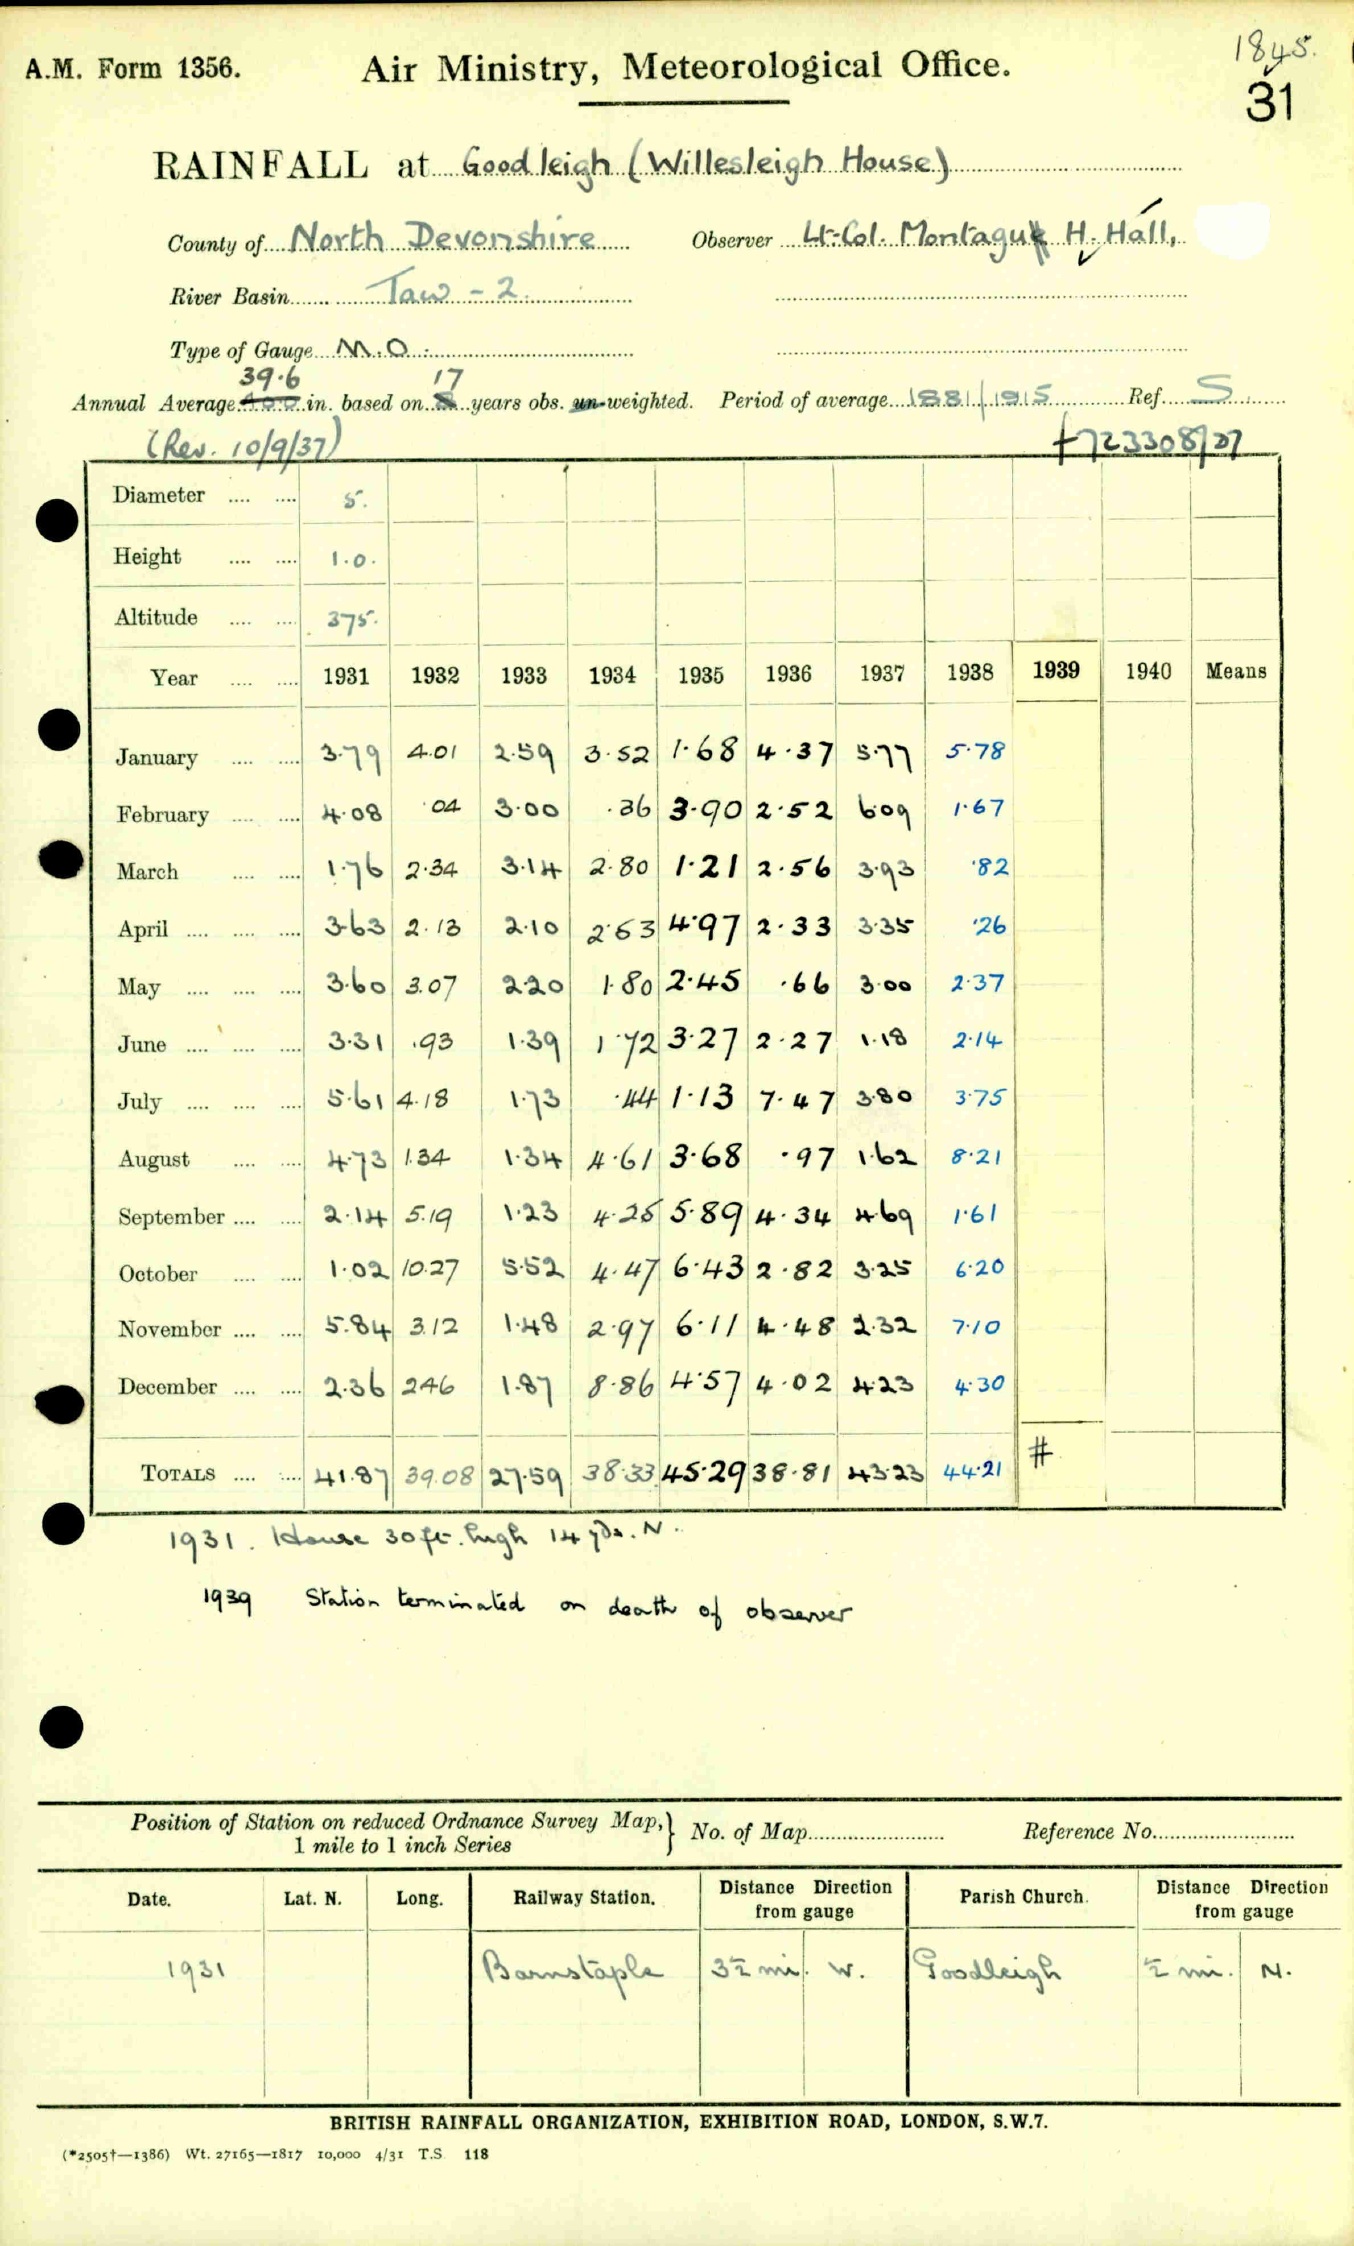 1845.
A.M. Form 1356. Air Ministry, Meteorological Office.
31
RAINFALL at Goodleigh (Willesleigh House)
County of North Devonshire Observer Lt-Col. Montague H. Hall,
River Basin Taw - 2.
Type of Gauge M.O.
39.6 17
Annual Average in. based on 8 years obs. un-weighted. Period of average 1881/1915 Ref. S
(Rev. 10/9/37) 723308/37
Diameter .... .... 5.
Height .... .... 1.0.
Altitude .... .... 375.
Year .... .... 1931 1932 1933 1934 1935 1936 1937 1938 1939 1940 Means
January .... .... 3.79 4.01 2.59 3.52 1.68 4.37 5.77 5.78
February .... .... 4.08 .04 3.00 .36 3.90 2.52 6.09 1.67
March .... .... 1.76 2.34 3.14 2.80 1.21 2.56 3.93 .82
April .... .... .... 3.63 2.13 2.10 2.53 4.97 2.33 3.35 .26
May .... .... .... 3.60 3.07 2.20 1.80 2.45 .66 3.00 2.37
June .... .... .... 3.31 .93 1.39 1.72 3.27 2.27 1.18 2.14
July .... .... .... 5.61 4.18 1.73 .44 1.13 7.47 3.80 3.75
August .... .... 4.73 1.34 1.34 4.61 3.68 .97 1.62 8.21
September .... .... 2.14 5.19 1.23 4.25 5.89 4.34 4.69 1.61
October .... .... 1.02 10.27 5.52 4.47 6.43 2.82 3.25 6.20
November .... .... 5.84 3.12 1.48 2.97 6.11 4.48 2.32 7.10
December .... .... 2.36 2.46 1.87 8.86 4.57 4.02 4.23 4.30
TOTALS .... .... 41.87 39.08 27.59 38.33 45.29 38.81 43.23 44.21 #
1931. House 30 ft. high 14 yds. N.
1939 Station terminated on death of observer
Position of Station on reduced Ordnance Survey Map,} No. of Map Reference No.
1 mile to 1 inch Series
Date. Lat. N. Long. Railway Station. Distance Direction from gauge Parish Church. Distance Direction from gauge
1931 Barnstaple 3½ mi. W. Goodleigh ½ mi. N.
BRITISH RAINFALL ORGANIZATION, EXHIBITION ROAD, LONDON, S.W.7.
(*2505†—1386) Wt. 27165—1817 10,000 4/31 T.S. 118